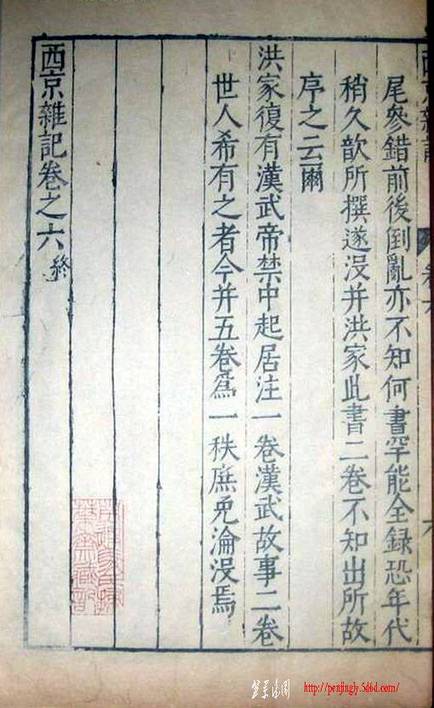 尾參錯前後倒亂亦不知何書罕能全錄恐年代
稍久歆所撰遂沒并洪家此書二卷不知出所故
序之云爾
洪家復有漢武帝禁中起居注一卷漢武故事二卷
世人希有之者今并五卷為一秩庶免淪沒焉
西京雜記卷之六 終
http://penjingly.5d6d.com/